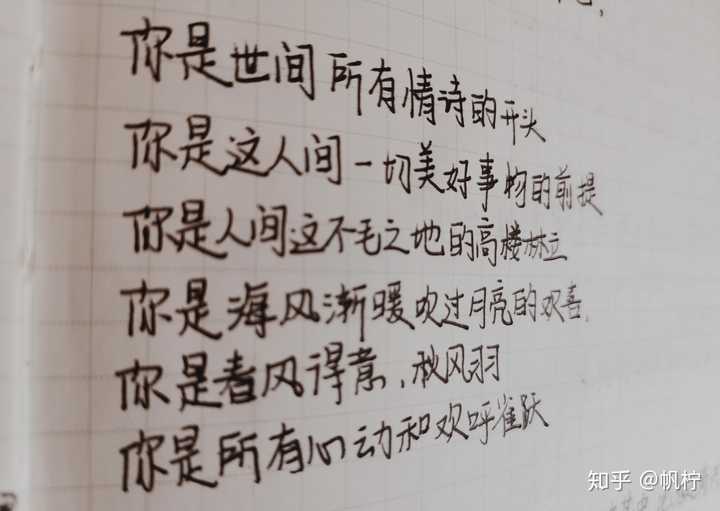 你是世间所有情诗的开头
你是这人间一切美好事物的前提
你是人间这不毛之地的高楼林立
你是海风渐暖吹过月亮的欢喜.
你是春风得意，秋风羽
你是所有心动和欢呼雀跃
知乎 @帆柠